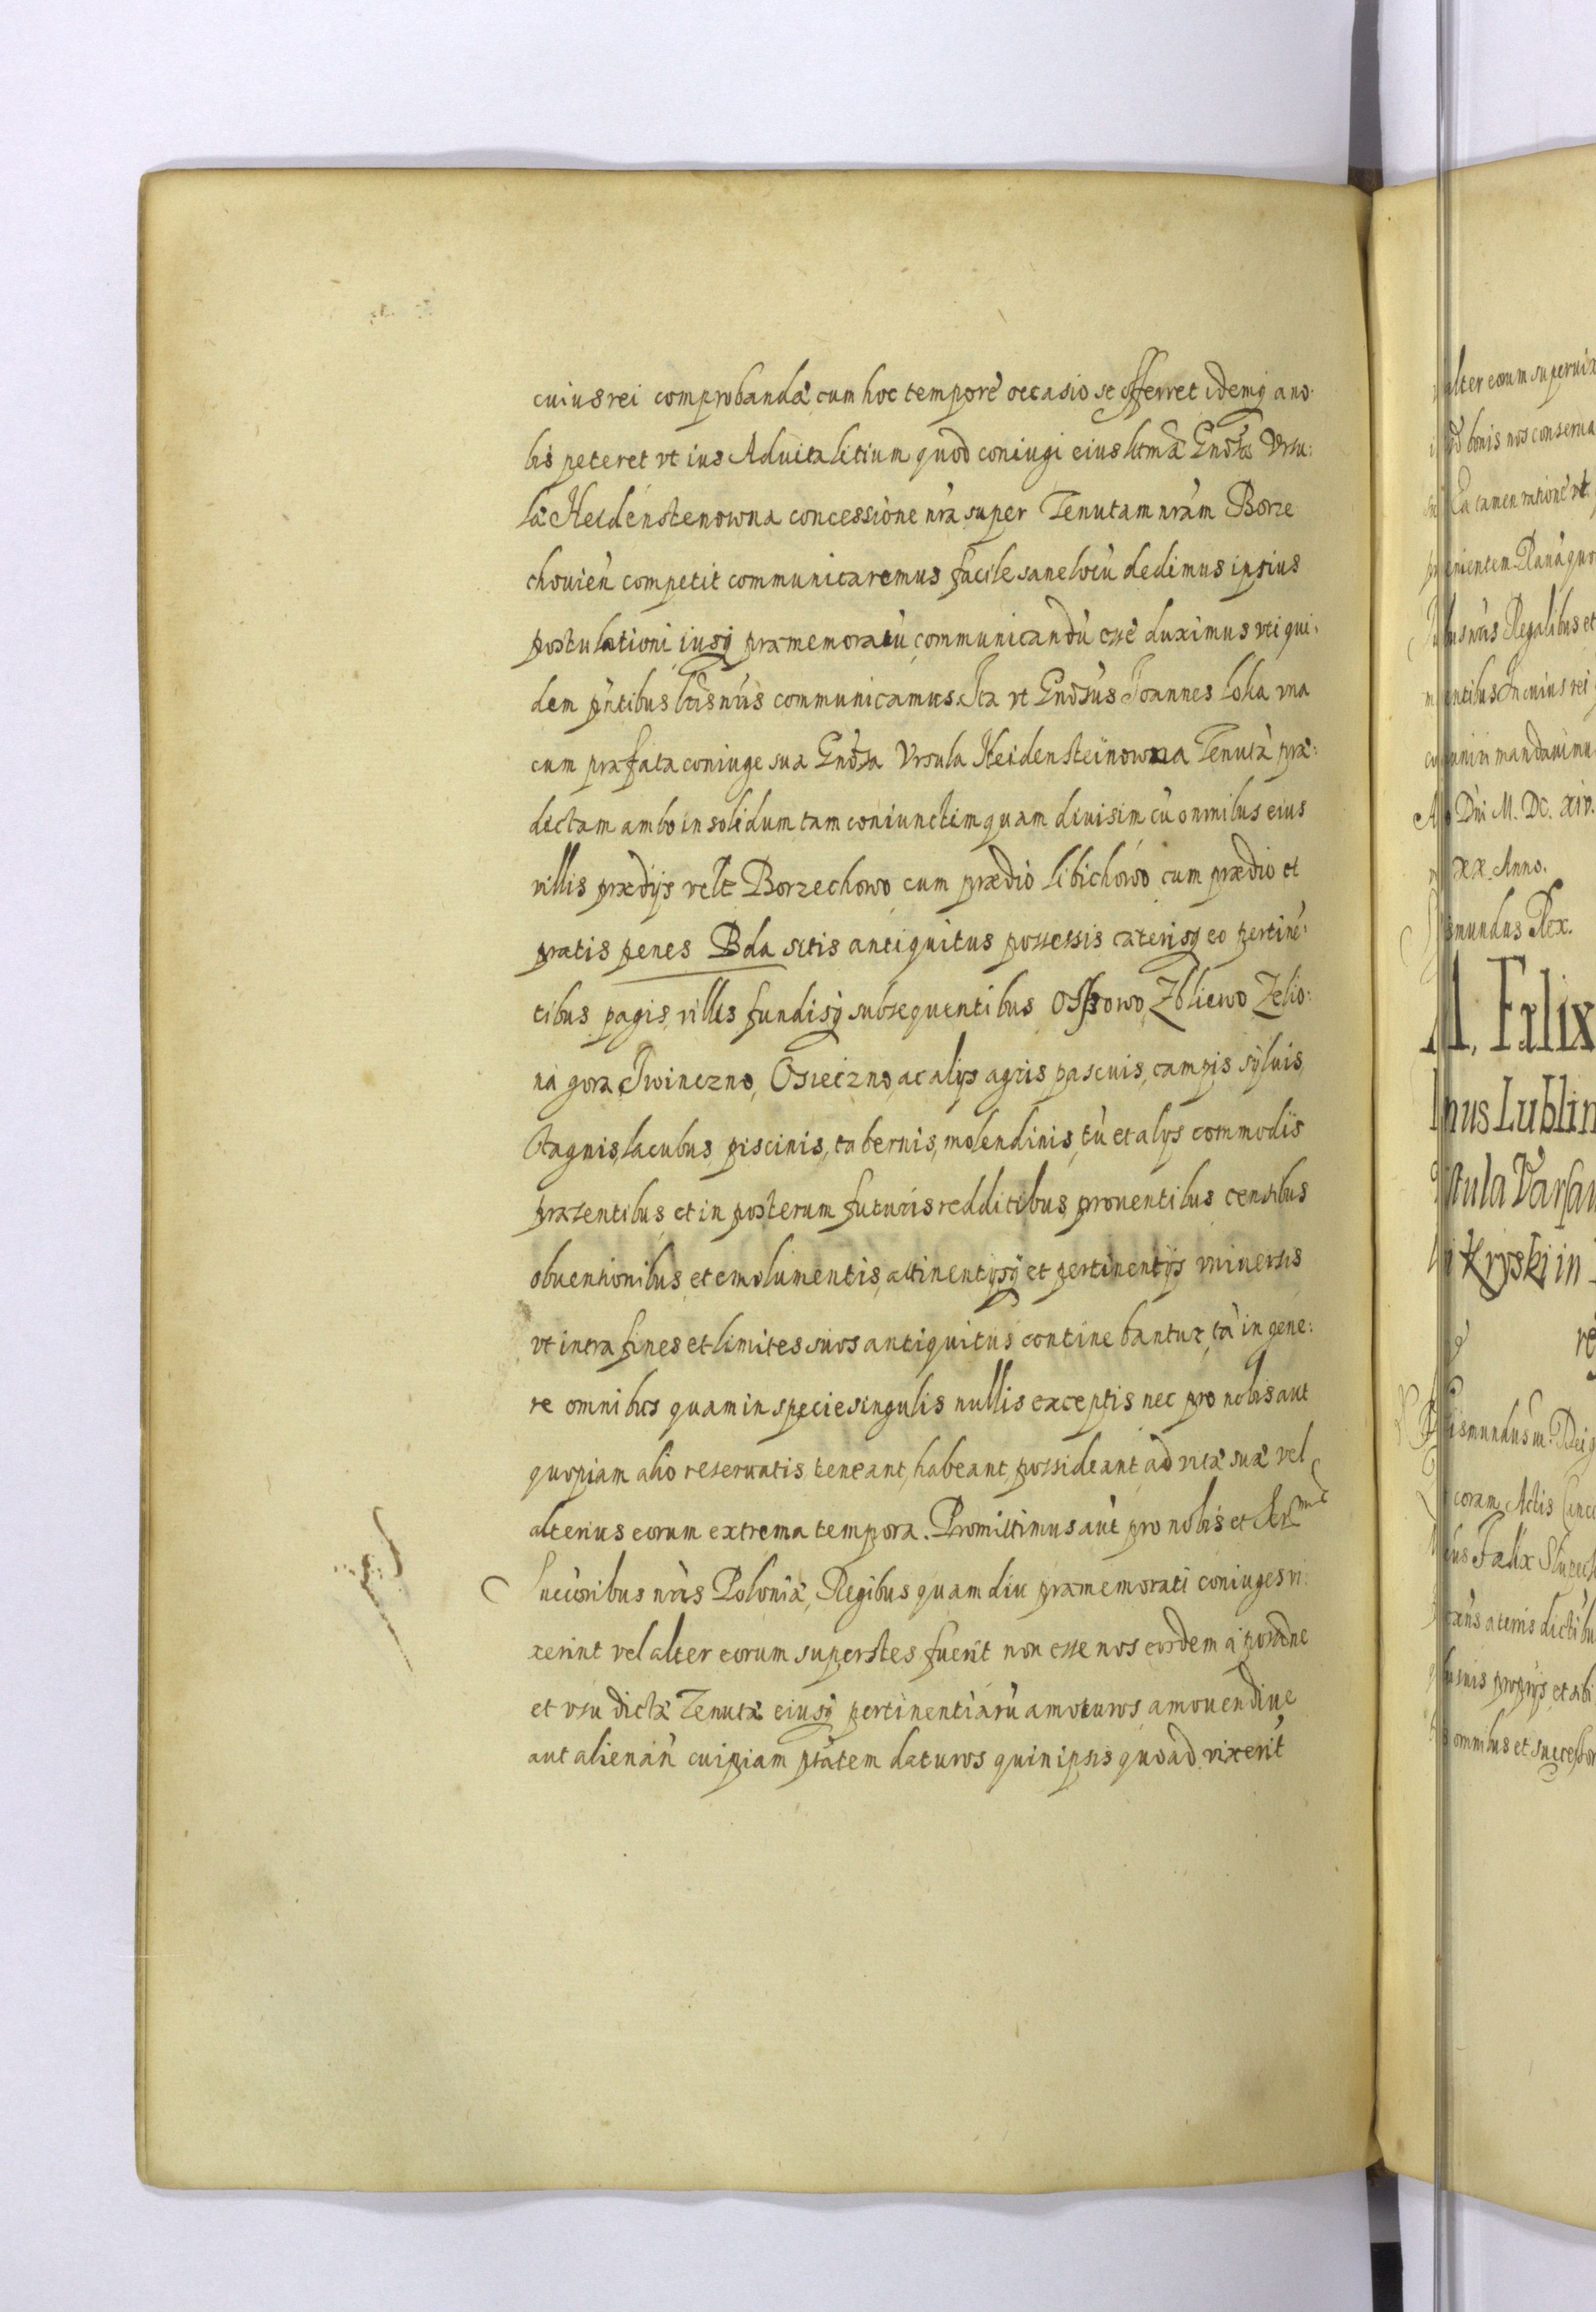 cuius rei comprobandæ cum hoc tempore occasio se offerret idemq̃ a no-
bis peteret vt ius Aduitalitium quod coniugi eius Gñosæ Vrsu:
læ Heidenstenowna concessione nr̃a super Tenutam nrãm Borze
chouien̄ competit communicaremus facile sane locū dedimus ipsius
postulationi iusq̃ præmemoratū communicandū esse duximus vti qui:
dem pñtibus lr̃is nr̃is communicamus. Ita vt Gñosus Ioannes Loka vna
cum præfata coniuge sua Gñosa Vrsula Heidensteinowna Tenutā præ:
dictam ambo in solidum tam coniunctim quam diuisim cū omnibus eius
villis prædijs velt Borzechowo cum prædio Libichowo cum prædio et
pratis penes Bda sitis antiquitus possessis cæterisq̃ eo pertinē:
tibus pagis, villis fundisq̃ subsequentibus Ossowo, Zbliewo Zelio:
na gora Iwiczno, Osieczno, ac alijs agris pascuis, campis syluis,
stagnis, lacubus, piscinis, tabernis, molendinis, tū et alijs commodis
præsentibus et in posterum futuris redditibus prouentibus censibus
obuentionibus, et emolumentis, attinentijsq̃ et pertinentijs vniuersis
vt intra fines et limites suos antiquitus continebantur, tā in gene:
re omnibus quam in specie singulis nullis exceptis nec pro nobis aut
quopiam alio reseruatis teneant, habeant, possideant ad vitæ suæ vel
alterius eorum extrema tempora. Promittimus aūt pro nobis et Serm̃is
Succ̄oribus nr̃is Poloniæ, Regibus quam diu præmemorati coniuges vi:
xerint vel alter eorum superstes fuerit non esse nos eosdem à posses̄ne
et vsu dictæ Tenutæ eiusq̃ pertinentiarū amoturos amouendiue
aut alienan̄ cuipiam ptãtem daturos quin ipsis quoad vixerit
alter eorum
bonis nos conserua
tamen ratione vt
nr̃is Regalibus et
In cuius rei
mandauimus
Dñi M. DC. XIV.
XX. Anno.
mundus Rex.
Fælix
nus Lublin
Kryski in
ismundus III. Dei g
coram Actis Canc
Fælix
omnibus et